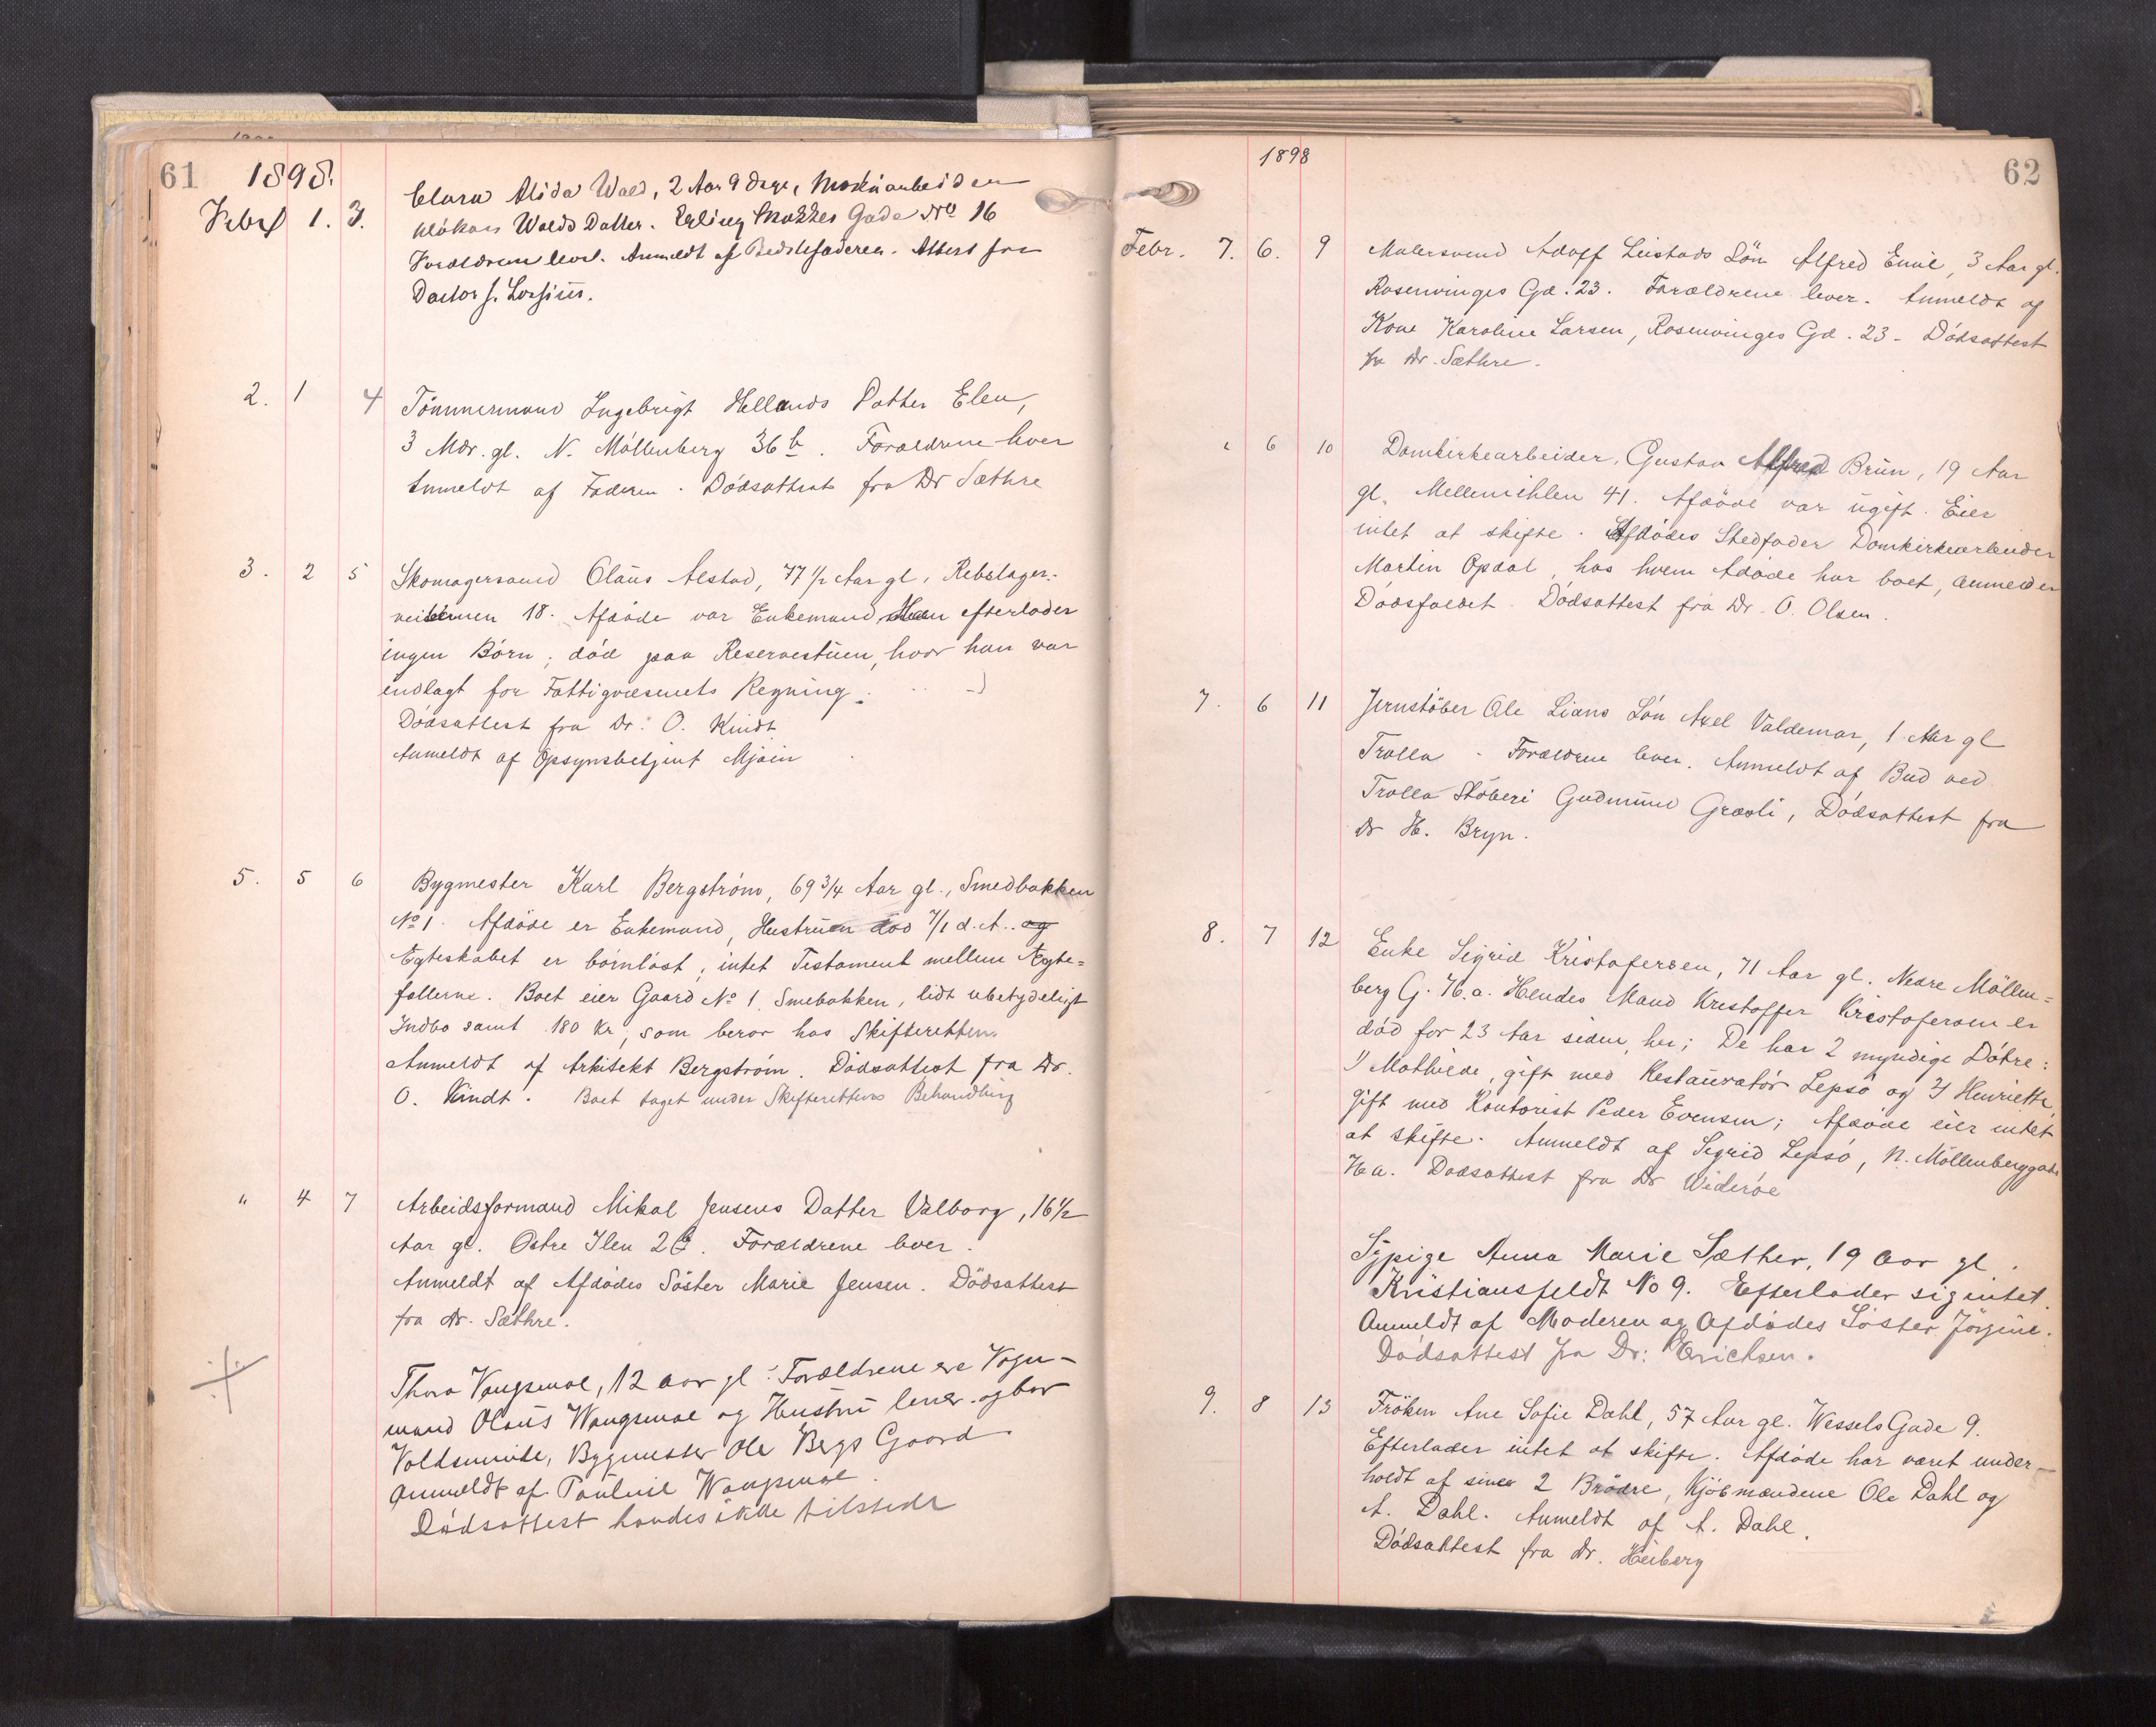 61 1898.
Febr 1. 3. Clara Alida Wald, 2 Aar 9 Dage,
Walds Datter. Erling Skakkes Gade No 16
Forældrene lever. Anmeldt af Bedstefaderen. Attest fra
Doctor
2. 1 4 Tömmermand Ingebrigt Hellands Datter Elen,
3 Mdr. gl. N. Möllenberg 36 b. Forældrene lever
Anmeldt af Faderen. Dödsattest fra Dr Sæthre
3. 2 5 Skomagersvend Olaus Alstad, 77 1/2 Aar gl, Rebslager-
veiten 18. Afdöde var Enkemand Han efterlader
ingen Börn; död paa Reservestuen, hvor han var
indlagt for Fattigvæsenets Regning.
Dödsattest fra Dr. O. Kindt
Anmeldt af Opsynsbetjent Mjøin
5. 5 6 Bygmester Karl Bergström, 69 3/4 Aar gl., Smedbakken
No 1. Afdöde er Enkemand, Hustruen död 7/1 d. A. og
Ægteskabet er börnlöst, intet Testament mellem Ægte=
fællerne. Boet eier Gaard No 1 Smebakken, lidt ubetydeligt
Indbo samt 180 Kr, som beror hos Skifteretten.
Anmeldt af Arkitekt Bergström. Dödsattest fra Dr.
O. Kindt. Boet taget under Skifterettens Behandling
" 4 7 Arbeidsformand Mikal Jensens Datter Valborg, 16 1/2
Aar gl. Östre Ilen 26. Forældrene lever.
Anmeldt af Afdödes Söster Marie Jensen. Dödsattest
fra Dr. Sæthre.
Thora Vangsmoe, 12 aar gl. Forældrene ere Vogn-
mand Olaus Wangsmoe og Hustru lever. og bor
Voldsminde, Bygmester Ole Bergs Gaard
Anmeldt af Pauline Wangsmoe.
Dödsattest havdes ikke tilstede
1898 62
Febr. 7. 6. 9 Malersvend Adolf Leistads Sön Alfred Emil, 3 Aar gl.
Rosenvinges Gd. 23. Forældrene lever. Anmeldt af
Kone Karoline Larsen, Rosenvinges Gd. 23 - Dödsattest
fra Dr. Sæthre.
" 6 10 Domkirkearbeider, Gustav Alfred Brun, 19 Aar
gl. Mellemihlen 41. Afdöde var ugift. Eier
intet at skifte. Afdödes Stedfader Domkirkearbeider
Martin Opdal, hos hvem Afdöde har boet, anmelder
Dödsfaldet. Dödsattest fra Dr. O. Olsen.
7. 6 11 Jernstöber Ole Lians Sön Axel Valdemar, 1 Aar gl
Trolla - Forældrene lever. Anmeldt af Bud ved
Trolla Stöberi Gudmund Græsli, Dödsattest fra
Dr H. Bryn.
8. 7 12 Enke Sigrid Kristofersen, 71 Aar gl. Nedre Möllen=
berg G. 76. a. Hendes Mand Kristoffer Kristofersen er
död for 23 Aar siden, her; De har 2 myndige Døtre:
1) Mathilde, gift med Restauratör Lepsö og 2) Henriette,
gift med Kontorist Peder Evensen; Afdöde eier intet
at skifte. Anmeldt af Sigrid Lepsö, N. Möllenberggade
76 a. Dödsattest fra Dr Wideröe
Sypige Anna Marie Sæther, 19 Aar gl.
Kristiansfeldt No 9. Efterlader sig intet.
Anmeldt af Moderen og Afdödes Söster Jörgine.
Dödsattest fra Dr: Erichsen.
9. 8 13 Fröken Ane Sofie Dahl, 57 Aar gl. Wessels Gade 9.
Efterlader intet at skifte. Afdöde har været under-
holdt af sine 2 Brödre, Kjöbmændene Ole Dahl og
A. Dahl. Anmeldt af A. Dahl.
Dödsattest fra Dr. Heiberg